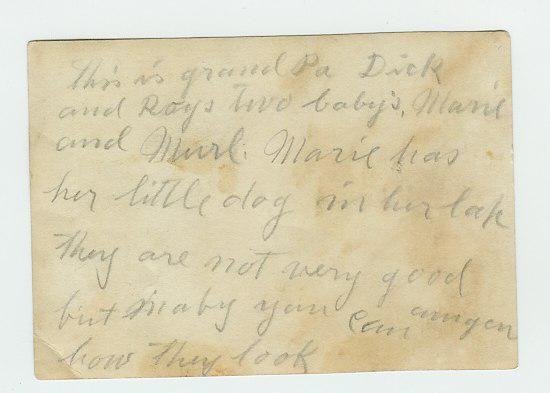 this is grand Pa Dick
and Roys two baby's, Marie
and Murl. Marie has
her little dog in her lap
they are not very good
but maby you can
how they look